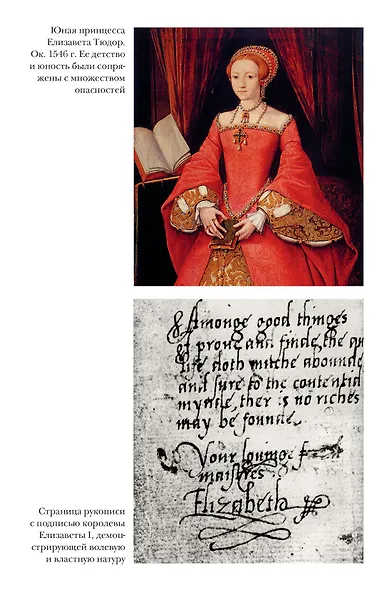 Юная принцесса
Елизавета Тюдор.
Ок. 1546 г. Ее детство
и юность были сопря-
жены с множеством
опасностей
Amonge good thinges
I proue and finde, the qu
life doth mutche abounde
and sure to the contentid
mynde, ther is no riches
may be founde.
Your lovinge
maistres
Elizabeth
Страница рукописи
с подписью королевы
Елизаветы I, демон-
стрирующей волевую
и властную натуру